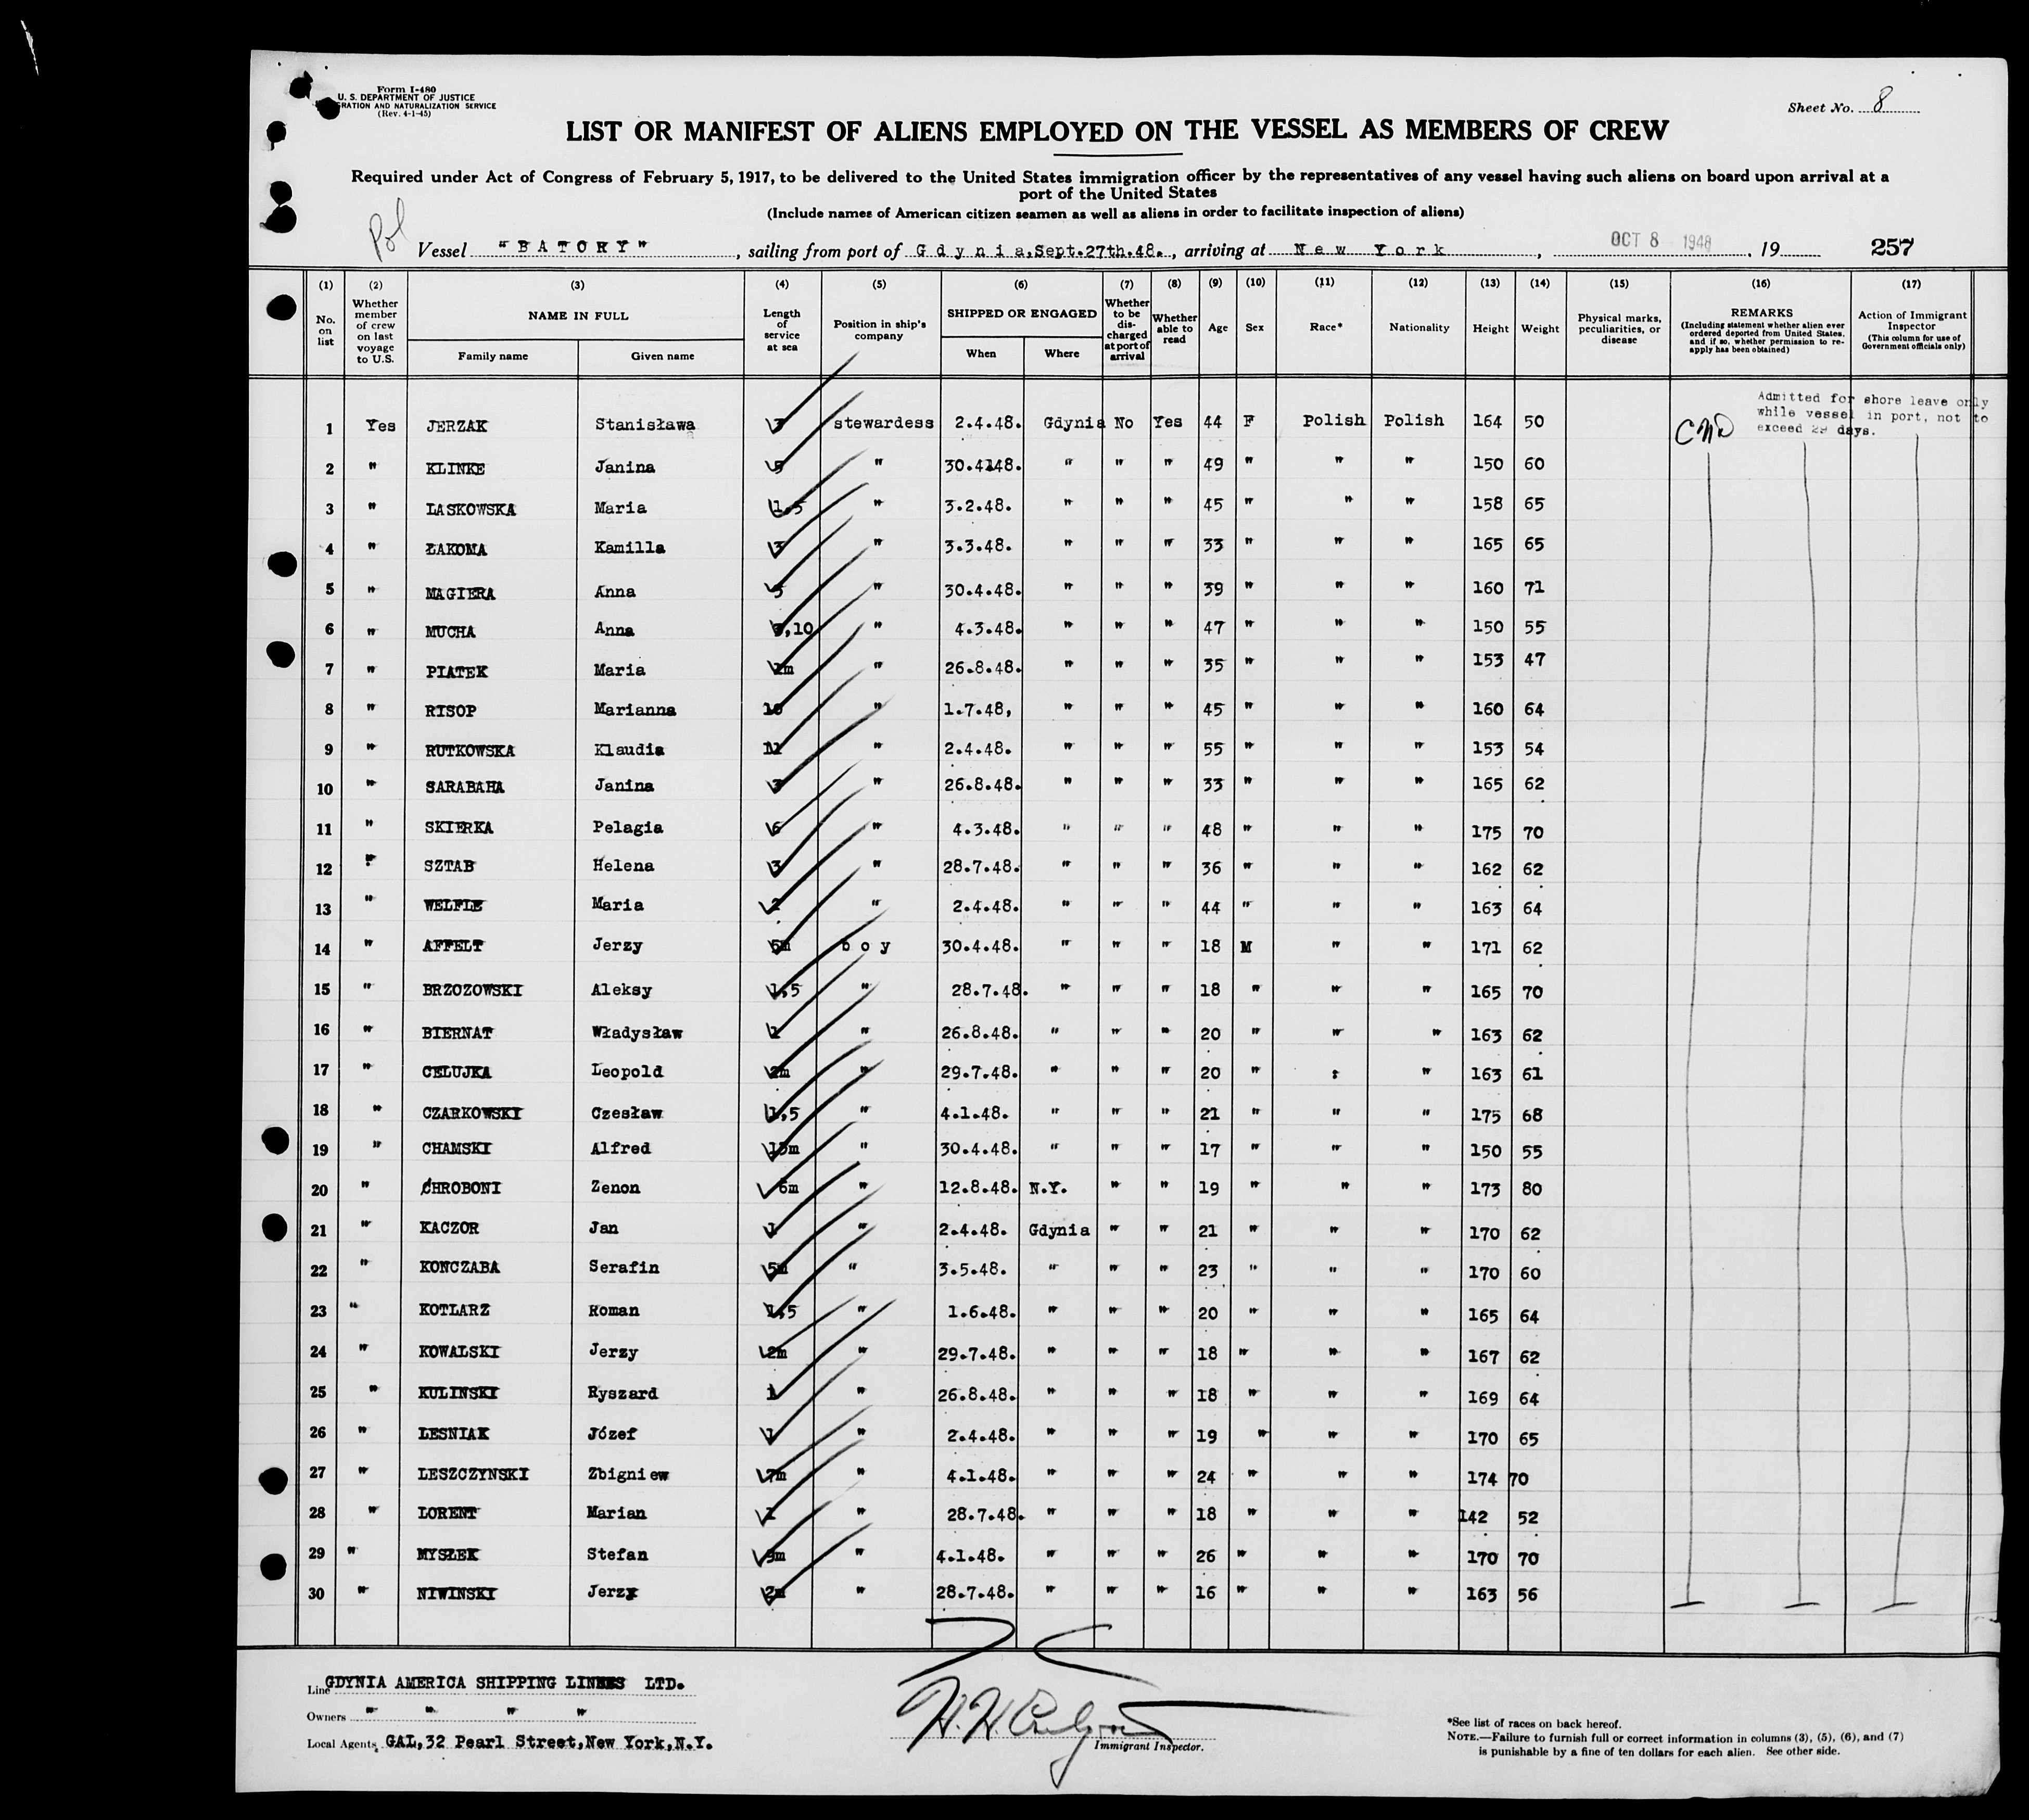 Form I-480
U. S. DEPARTMENT OF JUSTICE
GRATION AND NATURALIZATION SERVICE
(Rev. 4-1-45)
Sheet No. 8
LIST OR MANIFEST OF ALIENS EMPLOYED ON THE VESSEL AS MEMBERS OF CREW
Required under Act of Congress of February 5, 1917, to be delivered to the United States immigration officer by the representatives of any vessel having such aliens on board upon arrival at a
port of the United States
(Include names of American citizen seamen as well as aliens in order to facilitate inspection of aliens)
Pol
Vessel "BATORY", sailing from port of Gdynia,Sept.27th.48., arriving at New York, OCT 8 1948, 19 257
(1) (2) (3) (4) (5) (6) (7) (8) (9) (10) (11) (12) (13) (14) (15) (16) (17)
No. on list
Whether member of crew on last voyage to U.S.
NAME IN FULL
Family name
Given name
Length of service at sea
Position in ship's company
SHIPPED OR ENGAGED
When
Where
Whether to be dis-charged at port of arrival
Whether able to read
Age
Sex
Race*
Nationality
Height
Weight
Physical marks, peculiarities, or disease
REMARKS
(Including statement whether alien ever ordered deported from United States, and if so, whether permission to re-apply has been obtained)
Action of Immigrant Inspector
(This column for use of Government officials only)
Admitted for shore leave only
while vessel in port, not to
exceed 29 days.
1 Yes JERZAK Stanisława 3 stewardess 2.4.48. Gdynia No Yes 44 F Polish Polish 164 50
2 " KLINKE Janina 5 " 30.4148. " " " 49 " " " 150 60
3 " LASKOWSKA Maria 1,5 " 3.2.48. " " " 45 " " " 158 65
4 " ŁAKOMA Kamilla 3 " 3.3.48. " " " 33 " " " 165 65
5 " MAGIERA Anna 5 " 30.4.48. " " " 39 " " " 160 71
6 " MUCHA Anna ,10 " 4.3.48. " " " 47 " " " 150 55
7 " PIATEK Maria 2m " 26.8.48. " " " 35 " " " 153 47
8 " RISOP Marianna 10 " 1.7.48, " " " 45 " " " 160 64
9 " RUTKOWSKA Klaudia 11 " 2.4.48. " " " 55 " " " 153 54
10 " SARABAHA Janina 3 " 26.8.48. " " " 33 " " " 165 62
11 " SKIERKA Pelagia 6 " 4.3.48. " " " 48 " " " 175 70
12 " SZTAB Helena 3 " 28.7.48. " " " 36 " " " 162 62
13 " WELFLE Maria 2 " 2.4.48. " " " 44 " " " 163 64
14 " AFFELT Jerzy 5m boy 30.4.48. " " " 18 M " " 171 62
15 " BRZOZOWSKI Aleksy 1,5 " 28.7.48. " " " 18 " " " 165 70
16 " BIERNAT Władysław 1 " 26.8.48. " " " 20 " " " 163 62
17 " CELUJKA Leopold 2m " 29.7.48. " " " 20 " : " 163 61
18 " CZARKOWSKI Czesław 1,5 " 4.1.48. " " " 21 " " " 175 68
19 " CHAMSKI Alfred 15m " 30.4.48. " " " 17 " " " 150 55
20 " CHROBONI Zenon 6m " 12.8.48. N.Y. " " 19 " " " 173 80
21 " KACZOR Jan 1 " 2.4.48. Gdynia " " 21 " " " 170 62
22 " KONCZABA Serafin 5m " 3.5.48. " " " 23 " " " 170 60
23 " KOTLARZ Roman 1,5 " 1.6.48. " " " 20 " " " 165 64
24 " KOWALSKI Jerzy 2m " 29.7.48. " " " 18 " " " 167 62
25 " KULINSKI Ryszard 1 " 26.8.48. " " " 18 " " " 169 64
26 " LESNIAK Józef 1 " 2.4.48. " " " 19 " " " 170 65
27 " LESZCZYNSKI Zbigniew 7m " 4.1.48. " " " 24 " " " 174 70
28 " LORENT Marian 1 " 28.7.48. " " " 18 " " " 142 52
29 " MYSŁEK Stefan 9m " 4.1.48. " " " 26 " " " 170 70
30 " NIWINSKI Jerzy 2m " 28.7.48. " " " 16 " " " 163 56
Line GDYNIA AMERICA SHIPPING LINES LTD.
Owners " " " "
Local Agents GAL,32 Pearl Street,New York,N.Y.
Immigrant Inspector.
*See list of races on back hereof.
NOTE.—Failure to furnish full or correct information in columns (3), (5), (6), and (7)
is punishable by a fine of ten dollars for each alien. See other side.